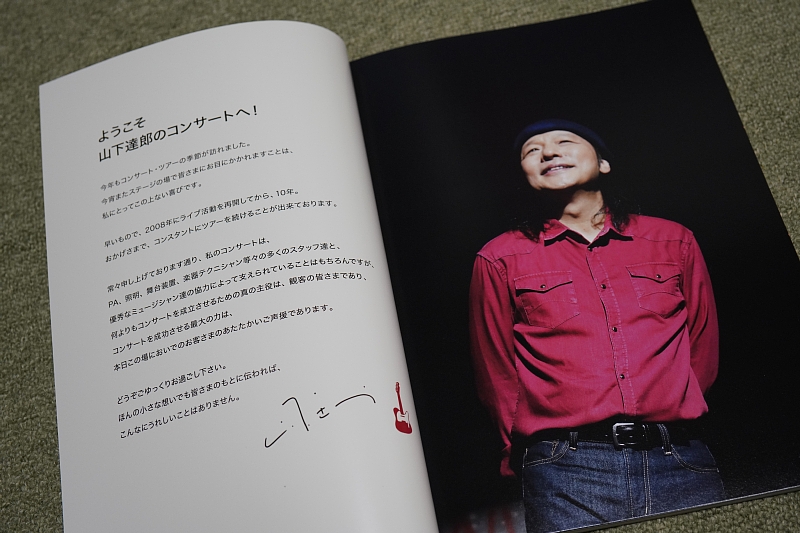 ようこそ
山下達郎のコンサートへ！
今年もコンサート・ツアーの季節が訪れました。
今宵またステージの場で皆さまにお目にかかれますことは、
私にとってこの上ない喜びです。
早いもので、2008年にライブ活動を再開してから、10年。
おかげさまで、コンスタントにツアーを続けることが出来ております。
常々申し上げております通り、私のコンサートは、
PA、照明、舞台装置、楽器テクニシャン等々の多くのスタッフ達と、
優秀なミュージシャン達の協力によって支えられていることはもちろんですが、
何よりもコンサートを成立させるための真の主役は、観客の皆さまであり、
コンサートを成功させる最大の力は、
本日この場においでのお客さまのあたたかいご声援であります。
どうぞごゆっくりお過ごし下さい。
ほんの小さな想いでも皆さまのもとに伝われば、
こんなにうれしいことはありません。